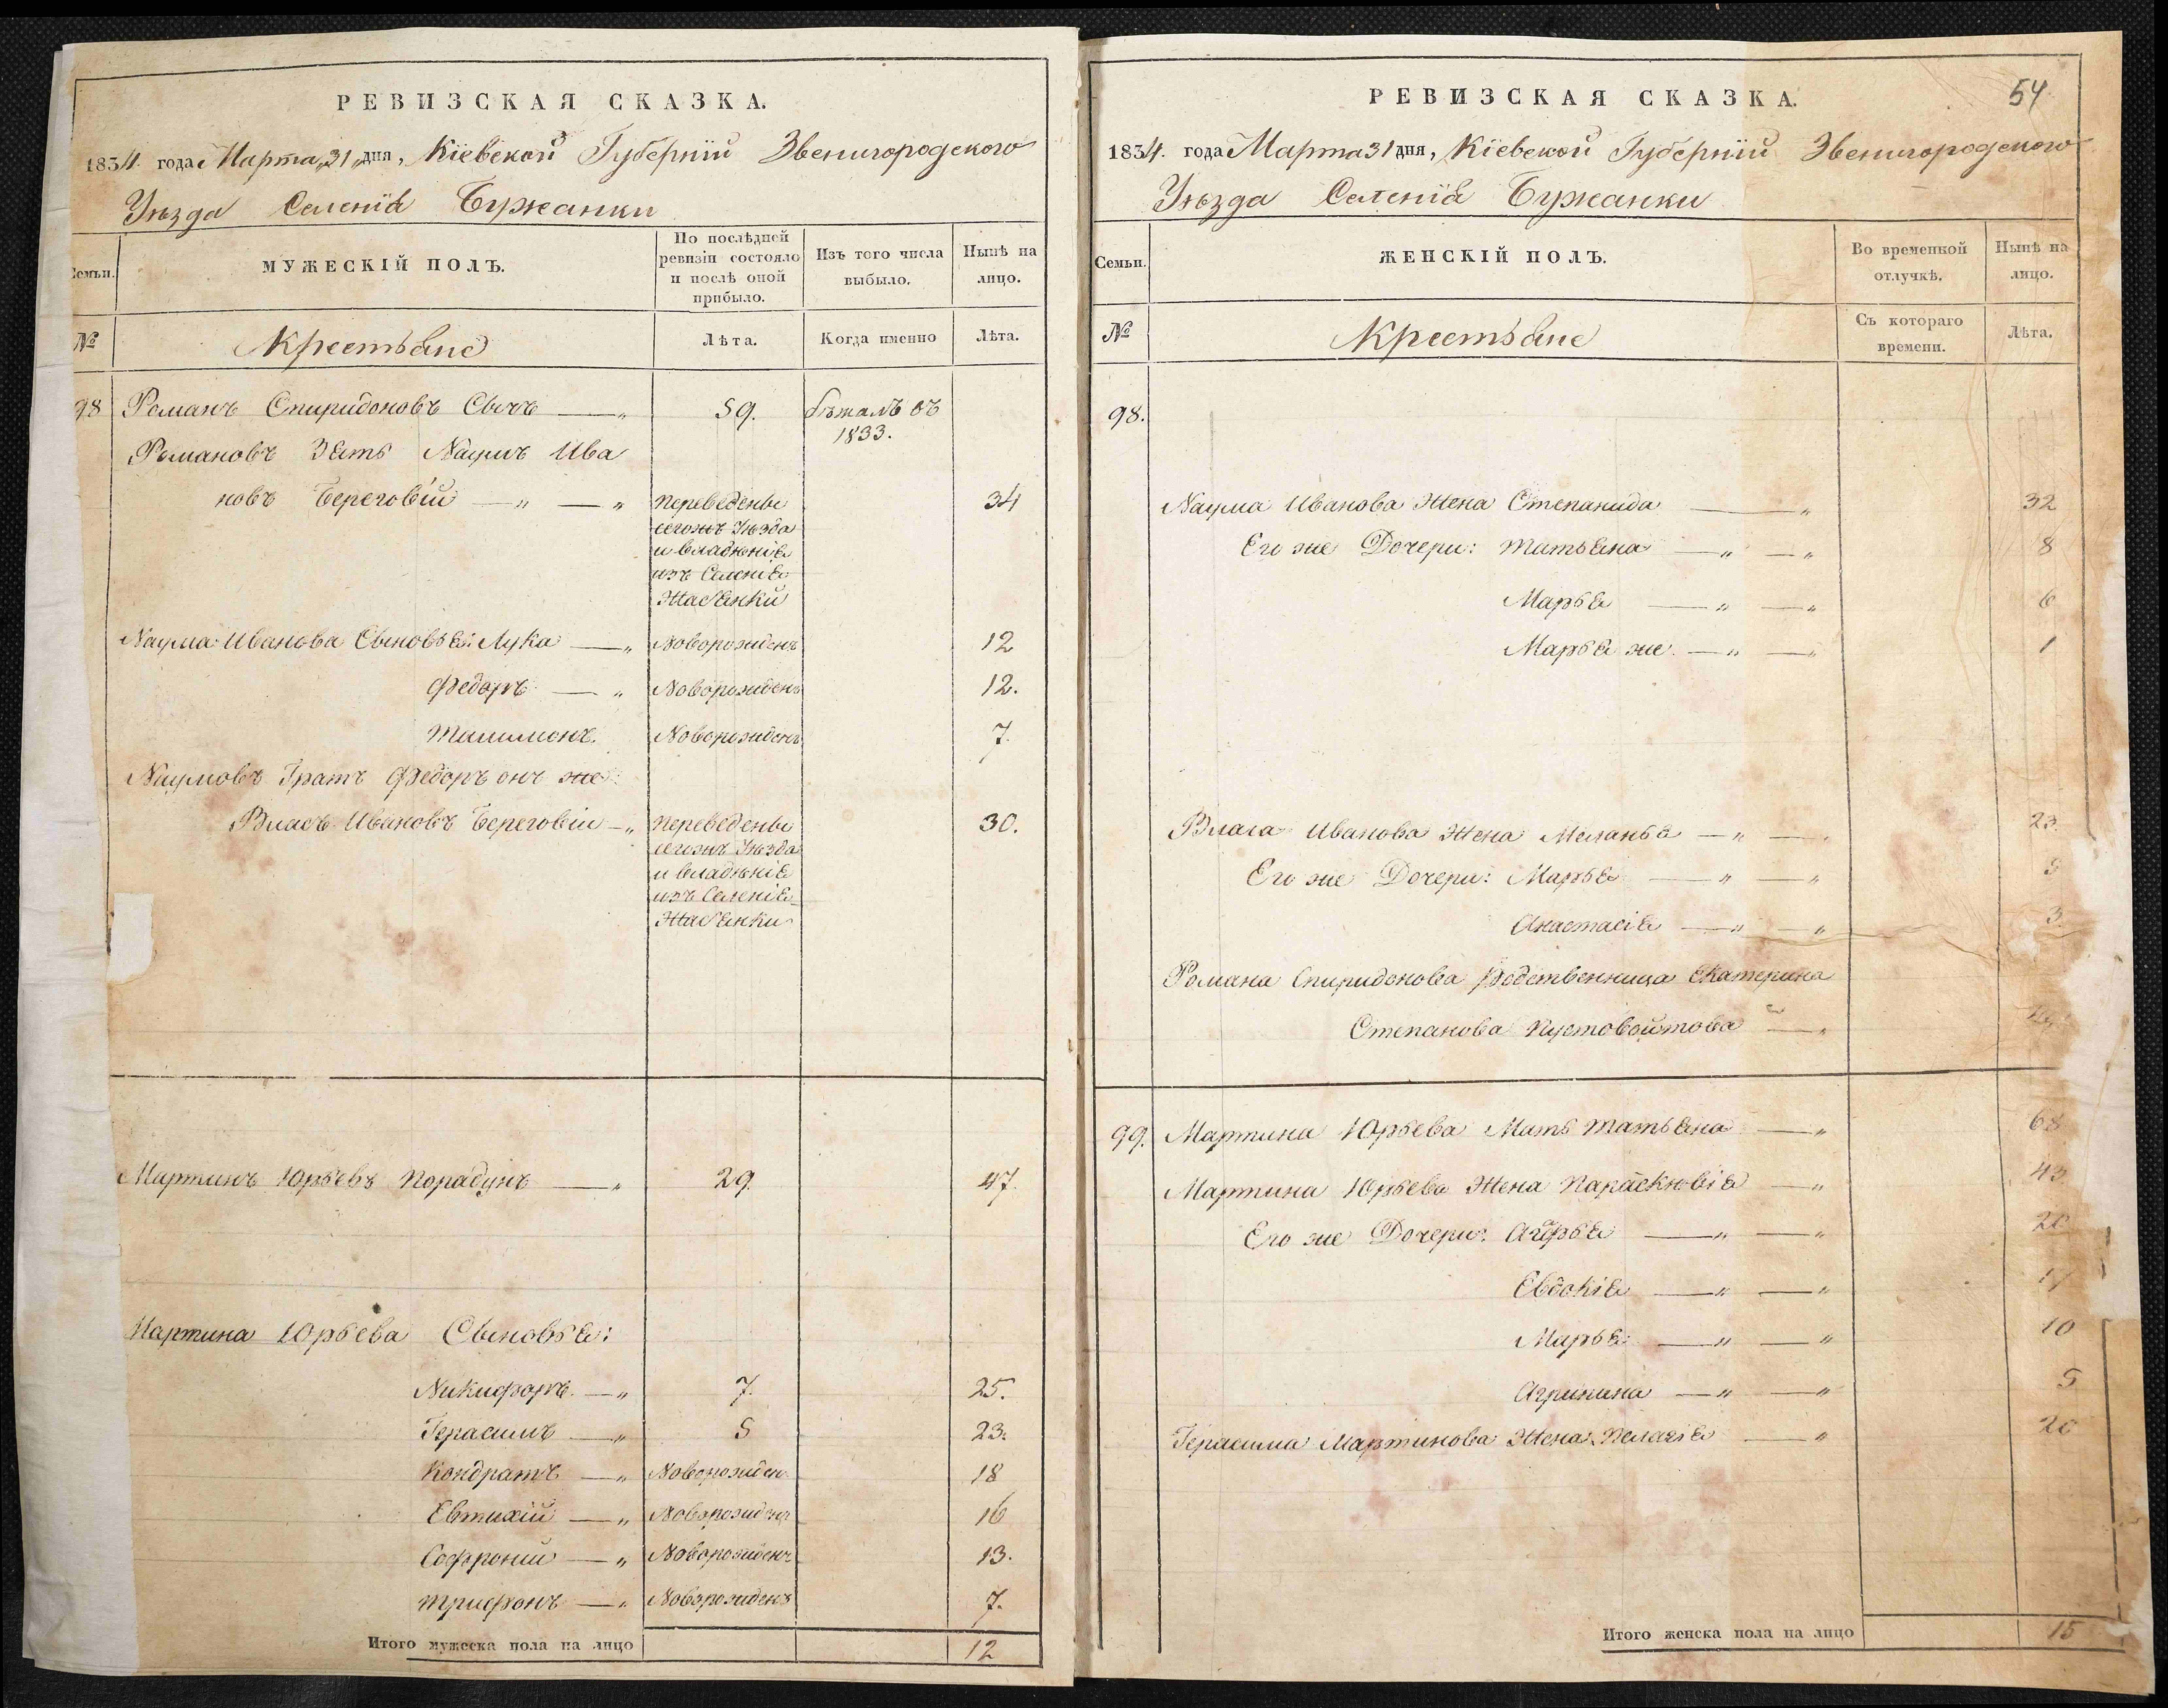 РЕВИЗСКАЯ СКАЗКА.
1834 года Марта 31 дня, Кіевской Губерніи Звенигородского
Уѣзда Селенія Бужанки
Семьи.
МУЖЕСКІЙ ПОЛЪ.
По послѣдней
ревизіи состояло
и послѣ оной
прибыло.
Изъ того числа
выбыло.
Нынѣ на
лицо.
№
Крестьяне
Лѣта.
Когда именно
Лѣта.
98 Романъ Спиридоновъ Сычъ — „ 59. бѣжалъ въ
1833.
Романовъ Зять Наумъ Ива
новъ Береговій — „ — „ переведены 34
сегожъ Уѣзда
и владѣнія
изъ Селенія
Жабянки
Наума Иванова Сыновья: Лука — „ Новорожденъ 12
Федоръ — „ Новорожденъ 12.
Новорожденъ 7.
Наумовъ Братъ Федоръ онъ же
Власъ Ивановъ Береговіи — „ переведены 30.
сегожъ Уѣзда
и владѣнія
изъ Селенія
Жабянки
Мартинъ Юрьевъ Порадунъ — „ 29. 47.
Мартина Юрьева Сыновья:
Никифоръ — „ 7. 25.
Герасимъ — „ 5 23.
Кондратъ — „ Новорожден 18
Евтихій — „ Новорожденъ 16
Софроній — „ Новорожденъ 13.
Трифонъ — „ Новорожденъ 7.
Итого мужеска пола на лицо 12
54
РЕВИЗСКАЯ СКАЗКА.
1834. года Марта 31 дня, Кіевской Губерніи Звенигородского
Уѣзда Селенія Бужанки
Семьи.
ЖЕНСКІЙ ПОЛЪ.
Во временной
отлучкѣ.
Нынѣ на
лицо.
№
Крестьяне
Съ котораго
времени.
Лѣта.
98.
Наума Иванова Жена Степанида — „ 32
Его же Дочери: Татьяна — „ — „ 8
Марья — „ — „ 6
Марья же — „ — „ 1
Власа Иванова Жена Меланья — „ — „ 23.
Его же Дочери: Марья — „ — „ 5
Анастасія — „ — „ 3.
Романа Спиридонова Родственница Екатерина
Степанова Пустовойтова — „
99. Мартина Юрьева Мать Татьяна — „ 68
Мартина Юрьева Жена Параскювія — „ 43
Его же Дочери: — „ — „ 20
Евдокія — „ — „ 17
Марья — „ — „ 10
Агрипина — „ — „ 5
Герасима Мартинова Жена Пелагія — „ 20
Итого женска пола на лицо 15